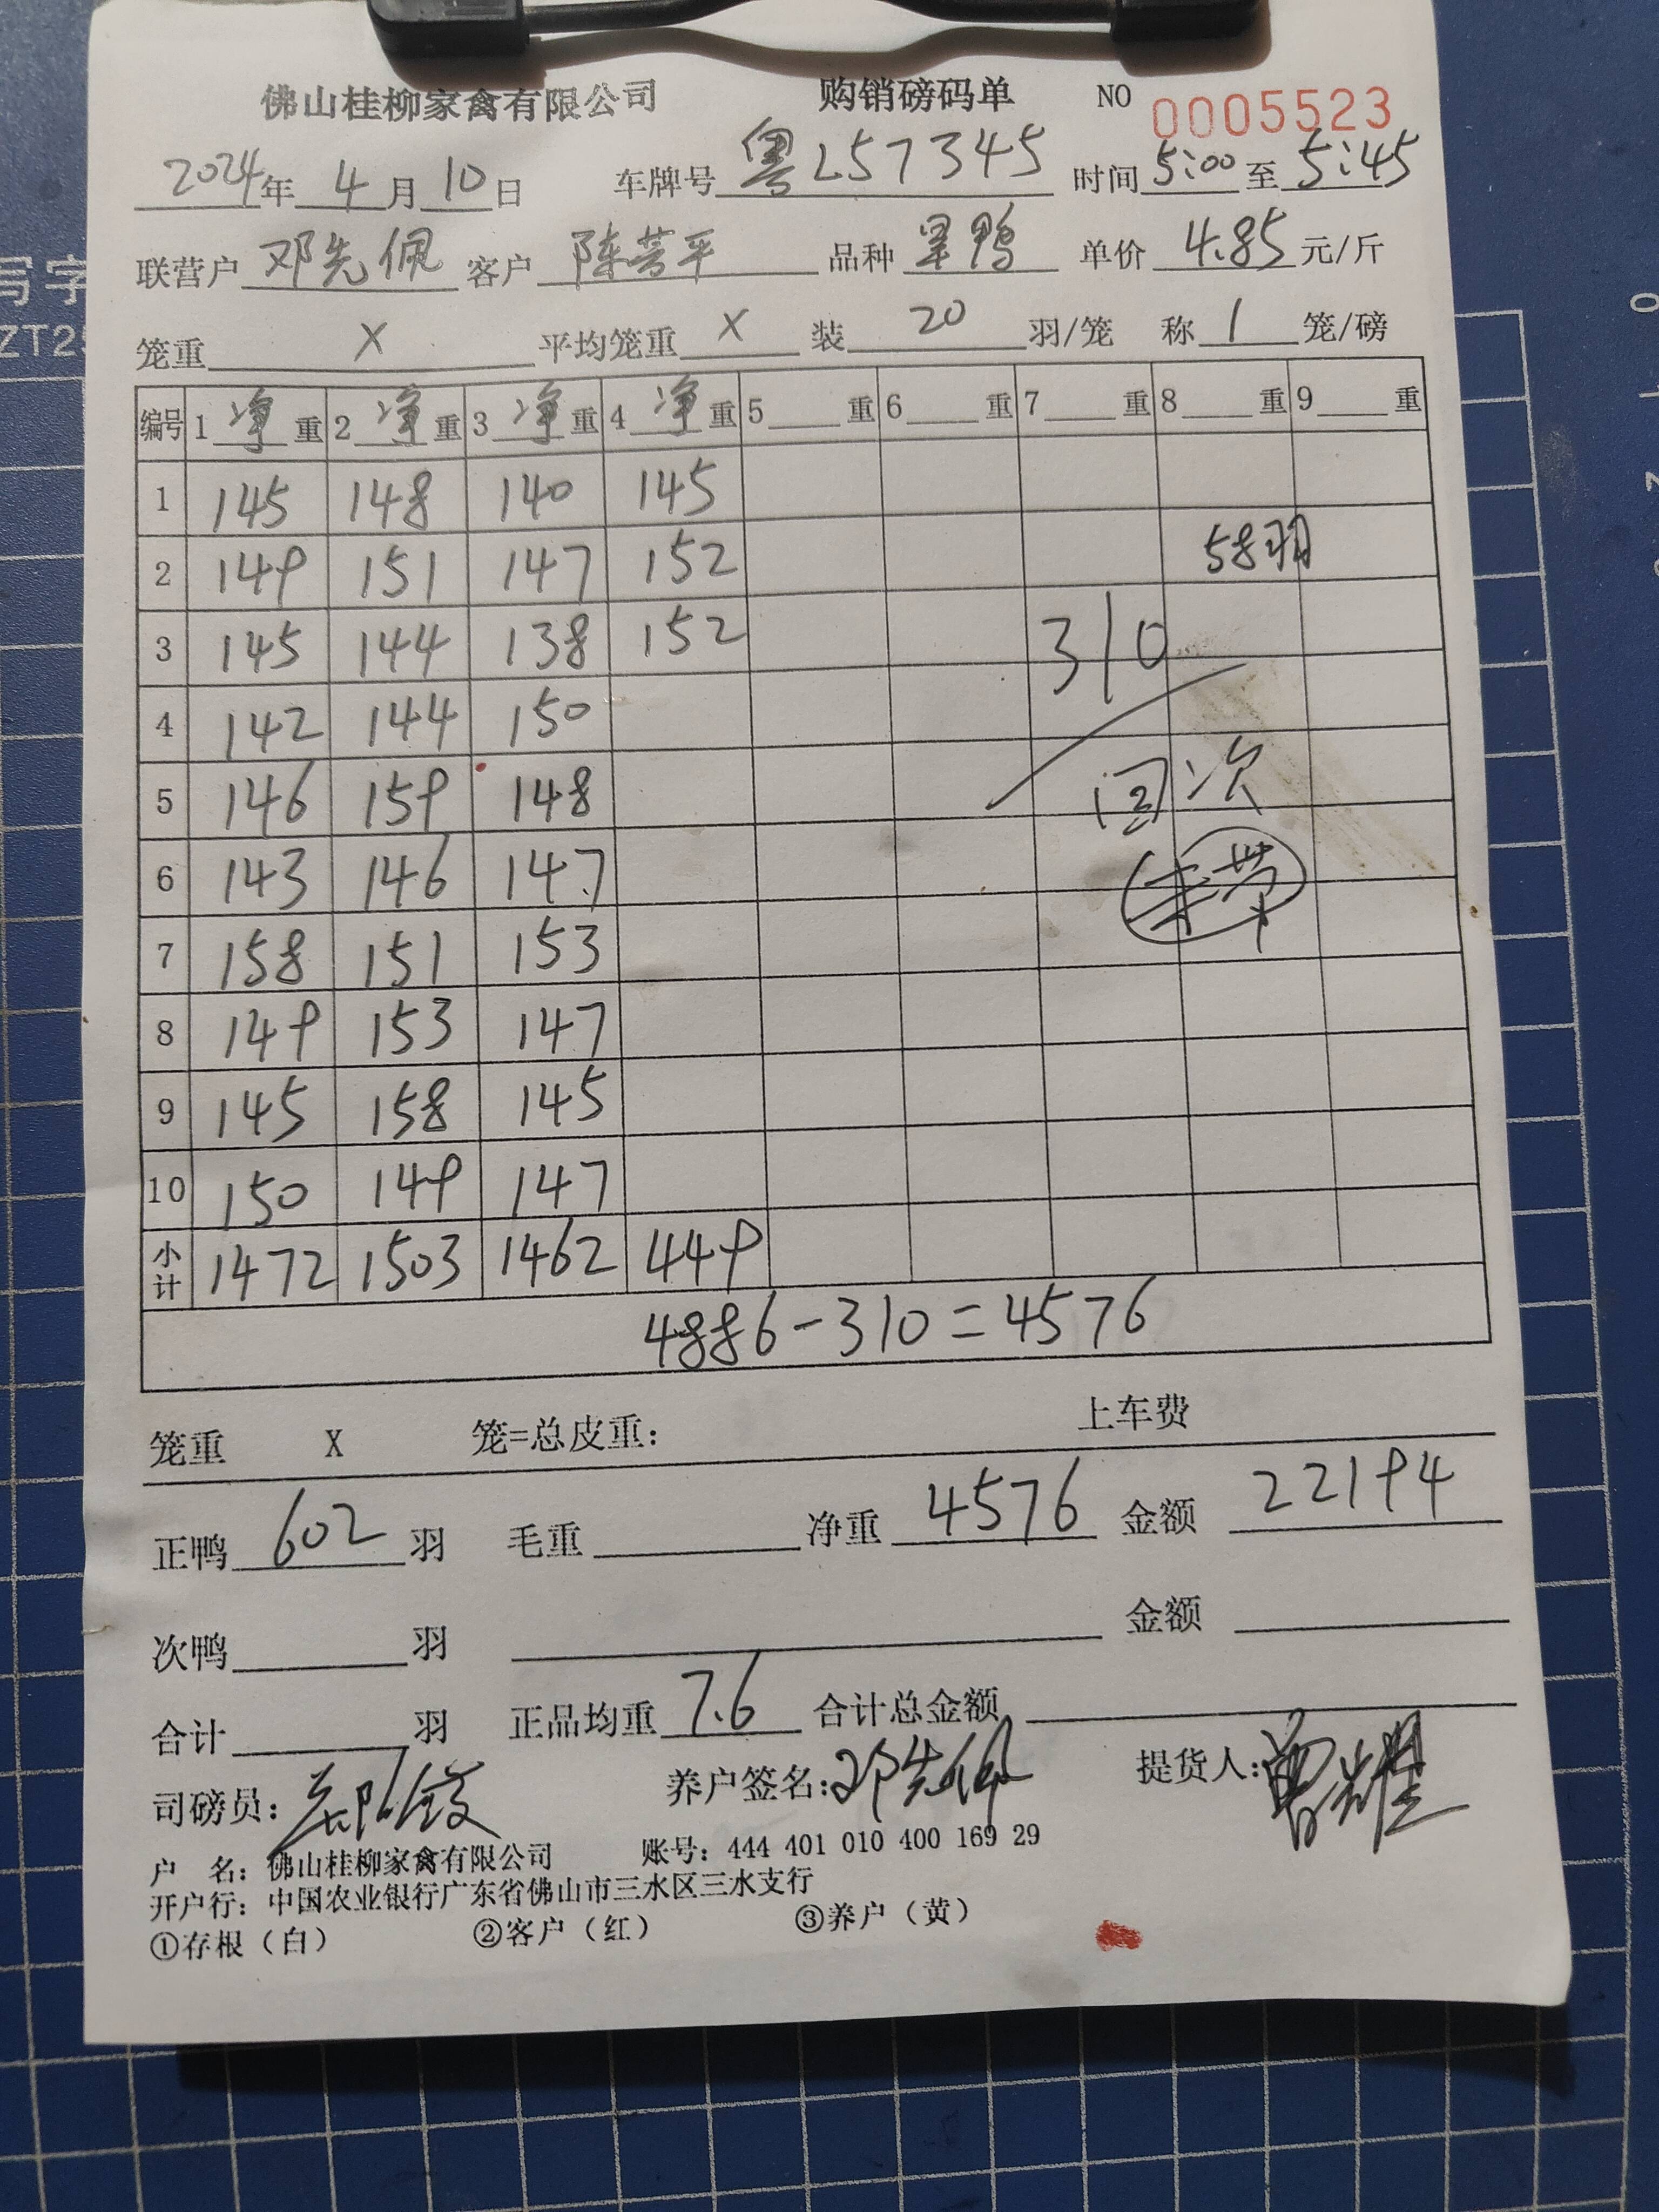 佛山桂柳家禽有限公司 购销磅码单 NO 0005523
2024年 4月10日 车牌号 粤L57345 时间5:00至5:45
联营户 邓先佩 客户 陈芳平 品种 单价 4.85 元/斤
笼重 X 平均笼重 X 装 20 羽/笼 称 1 笼/磅
编号 1 净 重 2 净 重 3 净 重 4 净 重 5 重 6 重 7 重 8 重 9 重
1 145 148 140 145
2 149 151 147 152 58羽
3 145 144 138 152 310
4 142 144 150
5 146 159 148 回次
6 143 146 147
7 158 151 153
8 149 153 147
9 145 158 145
10 150 149 147
小计 1472 1503 1462 449
4886-310=4576
笼重 X 笼=总皮重: 上车费
正鸭 602 羽 毛重 净重 4576 金额 22194
次鸭 羽 金额
合计 羽 正品均重 7.6 合计总金额
司磅员: 养户签名:邓先佩 提货人:曾耀
户 名:佛山桂柳家禽有限公司 账号:444 401 010 400 169 29
开户行:中国农业银行广东省佛山市三水区三水支行
①存根(白) ②客户(红) ③养户(黄)
写字